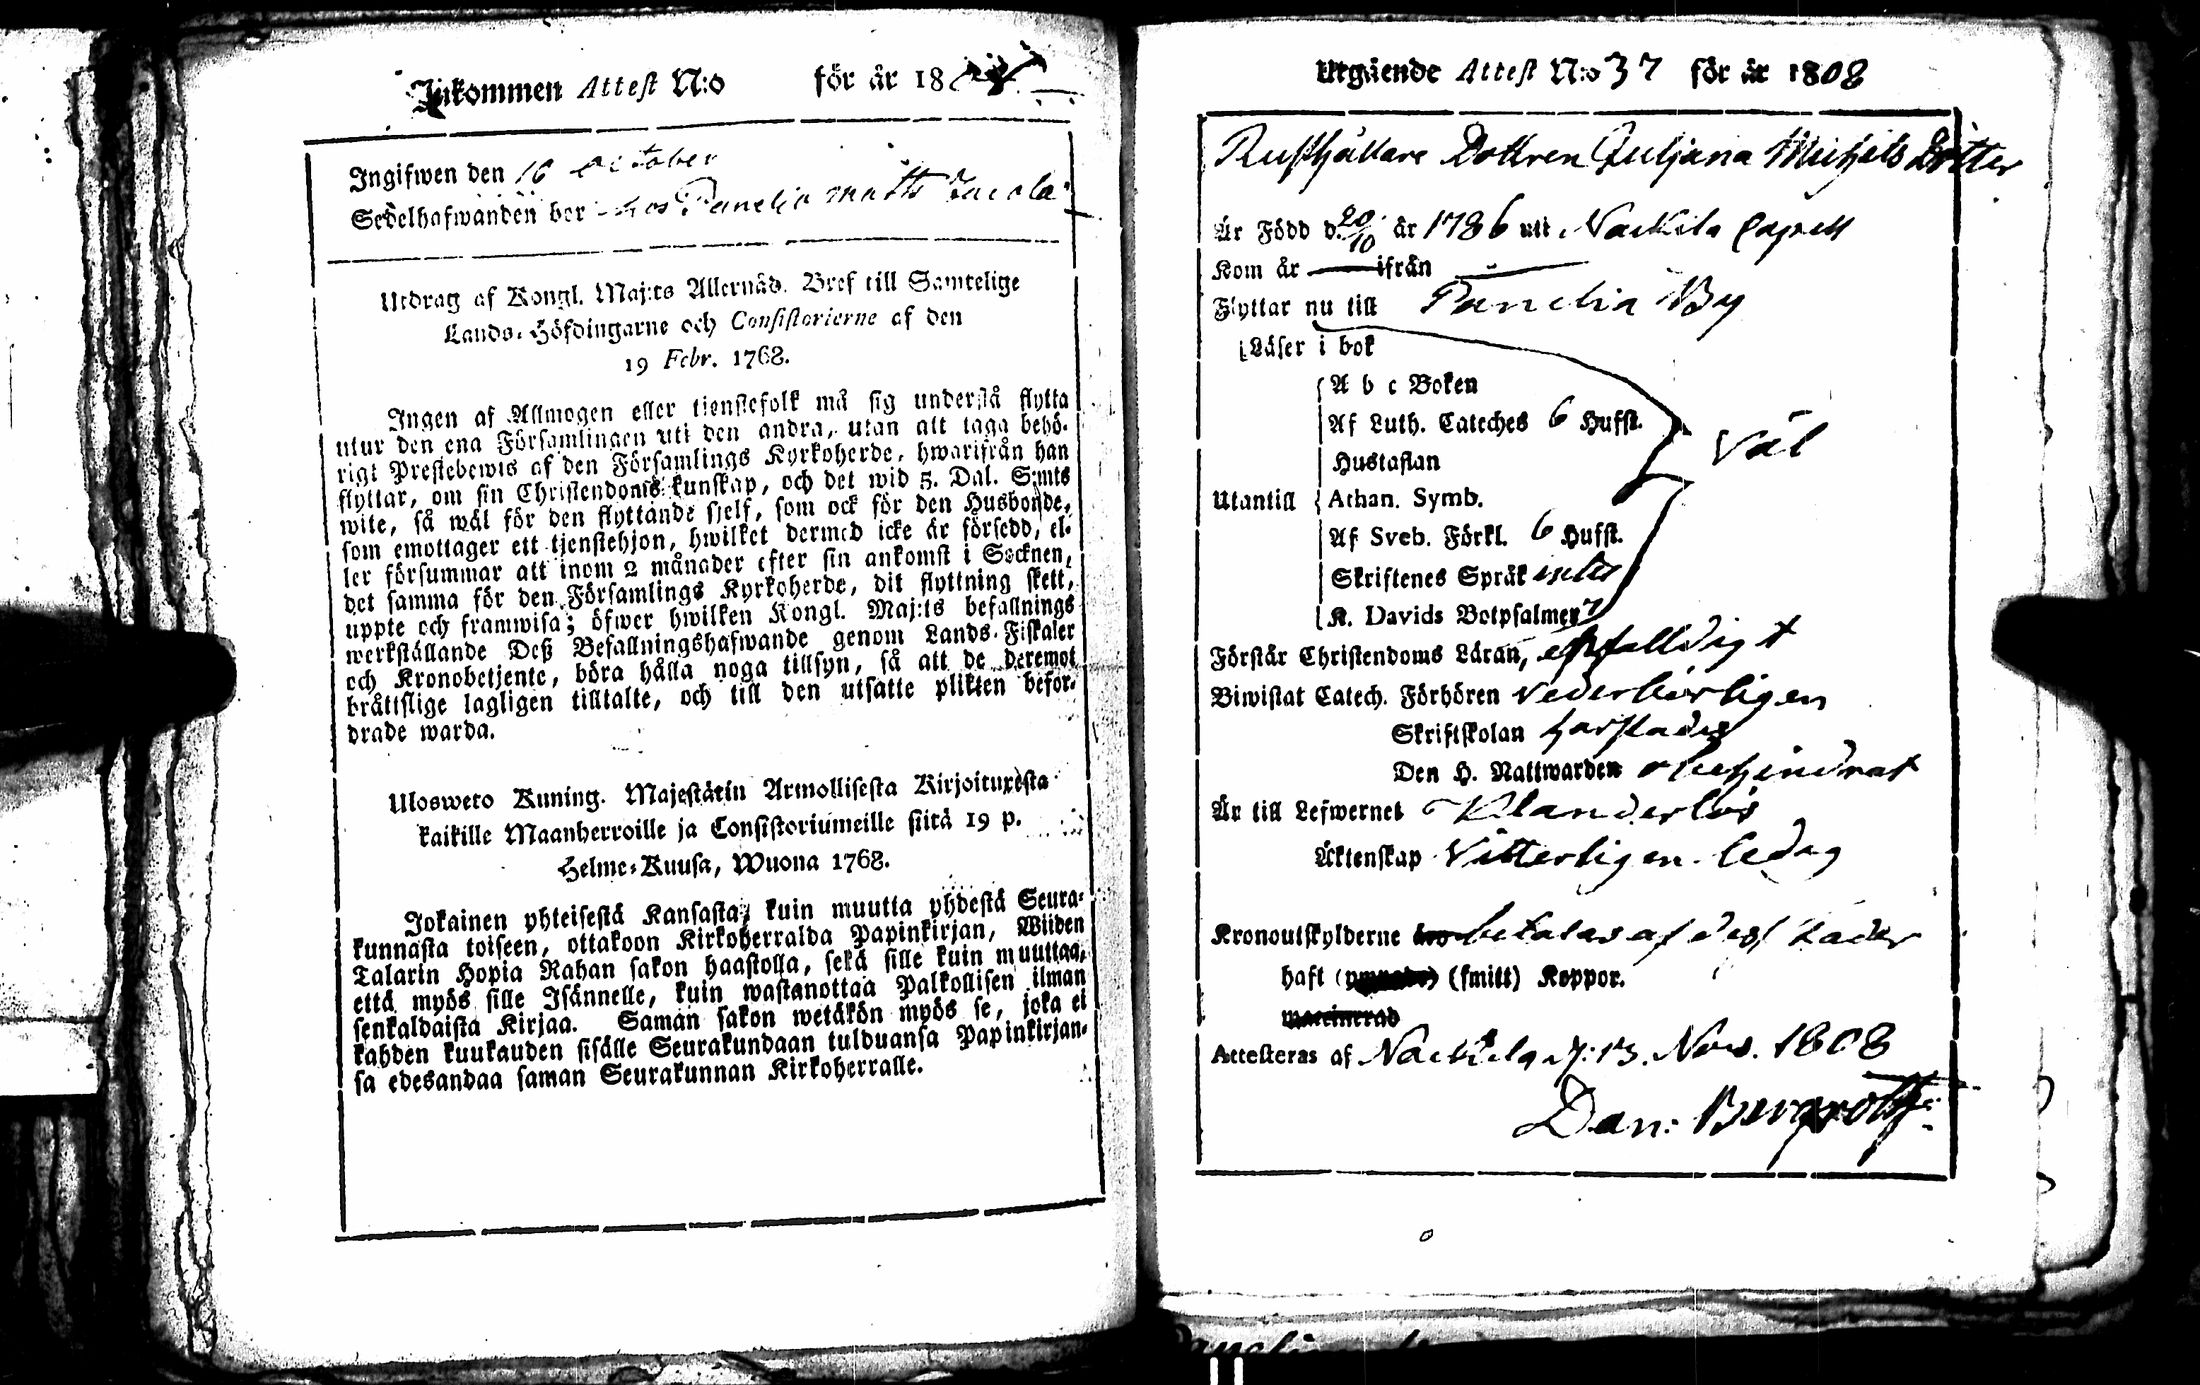 Inkommen Attest N:o för år 18
Ingifwen den 16 October
Sedelhafwanden bor hos Panelia Matts Jacola
Utdrag af Kongl. Maj:ts Allernåd. Bref till Samtelige
Lands-Höfdingarne och Consistorierne af den
19 Febr. 1768.
Ingen af Allmogen eller tienstefolk må sig understå flytta
utur den ena Församlingen uti den andra, utan att taga behö-
rigt Prestebewis af den Församlings Kyrkoherde, hwarifrån han
flyttar, om sin Christendoms kunskap, och det wid 5. Dal. S:mts
wite, så wäl för den flyttande sjelf, som ock för den Husbonde,
som emottager ett tjenstehjon, hwilket dermed icke är försedd, el-
ler försummar att inom 2 månader efter sin ankomst i Socknen,
det samma för den Församlings Kyrkoherde, dit flyttning skett,
uppte och framwisa; öfwer hwilken Kongl. Maj:ts befallnings
werkställande Deß Befallningshafwande genom Lands-Fiskaler
och Kronobetjente, böra hålla noga tillsyn, så att de deremot
bråttslige lagligen tilltalte, och till den utsatte plikten befor-
drade warda.
Ulosweto Kuning. Majestätin Armollisesta Kirjoituxesta
kaikille Maanherroille ja Consistoriumeille siitä 19 p.
Helme-Kuusa, Wuona 1768.
Jokainen yhteisestä Kansasta, kuin muutta yhdestä Seura-
kunnasta toiseen, ottakoon Kirkoherralda Papinkirjan, Wiiden
Talarin Hopia Rahan sakon haastolla, sekä sille kuin muuttaa,
että myös sille Isännelle, kuin wastanottaa Palkollisen ilman
senkaldaista Kirjaa. Saman sakon wetäkön myös se, joka ei
kahden kuukauden sisälle Seurakundaan tulduansa Papinkirjan-
sa edesandaa saman Seurakunnan Kirkoherralle.
Utgående Attest N:o 37 för år 1808
Rusthållare Dottren Juljana Michels Dotter
Är Född d. 20/10 år 1786 uti Nackila Capell
Kom år ifrån
Flyttar nu till Panelia By
Läser i bok
A b c Boken
Af Luth. Cateches 6 Hufst.
Hustaflan
Väl
Utantill Athan. Symb.
Af Sveb. Förkl. 6 Hufst.
Skriftenes Språk
K. Davids Botpsalmer 7
Förstår Christendoms Läran, enfalldigt
Biwistat Catech. Förhören vederbörligen
Skriftskolan
Den H. Nattwarden obehindrat
Är till Lefwernet Klanderlös
Äktenskap Vitterligen ledig
Kronoutskylderne betalas af dess Fader
haft (smitt) Koppor.
Attesteras af Nackila d: 13. Nov. 1808
Dan: Bergroth